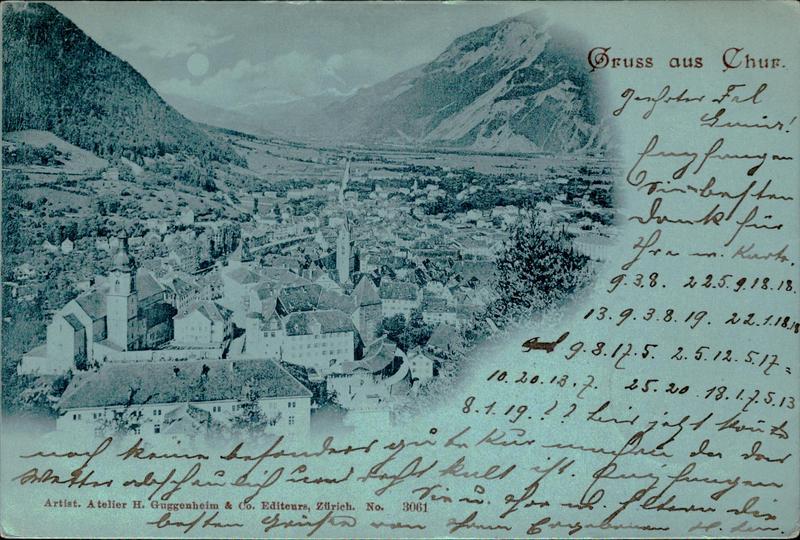 Gruss aus Chur.
Geehrter Frl.
Empfangen
Sie besten
Dank für
Ihre w. Karte.
9.3.8. 22.5.9.18.18.
13.9.3.8.19. 22.1.18.18
9.8.17.5. 2.5.12.5.17=
10.20.13.7. 25.20.18.1.7.5.13
8.1.19.?? bis jetzt konnte
noch keine besonders gute Kur machen da das
Wetter und recht kalt ist. Empfangen
Artist. Atelier H. Guggenheim & Co. Editeurs, Zürich. No. 3061
Sie u. Ihre w. Eltern die
besten Grüsse von Ihrem Ergebenen